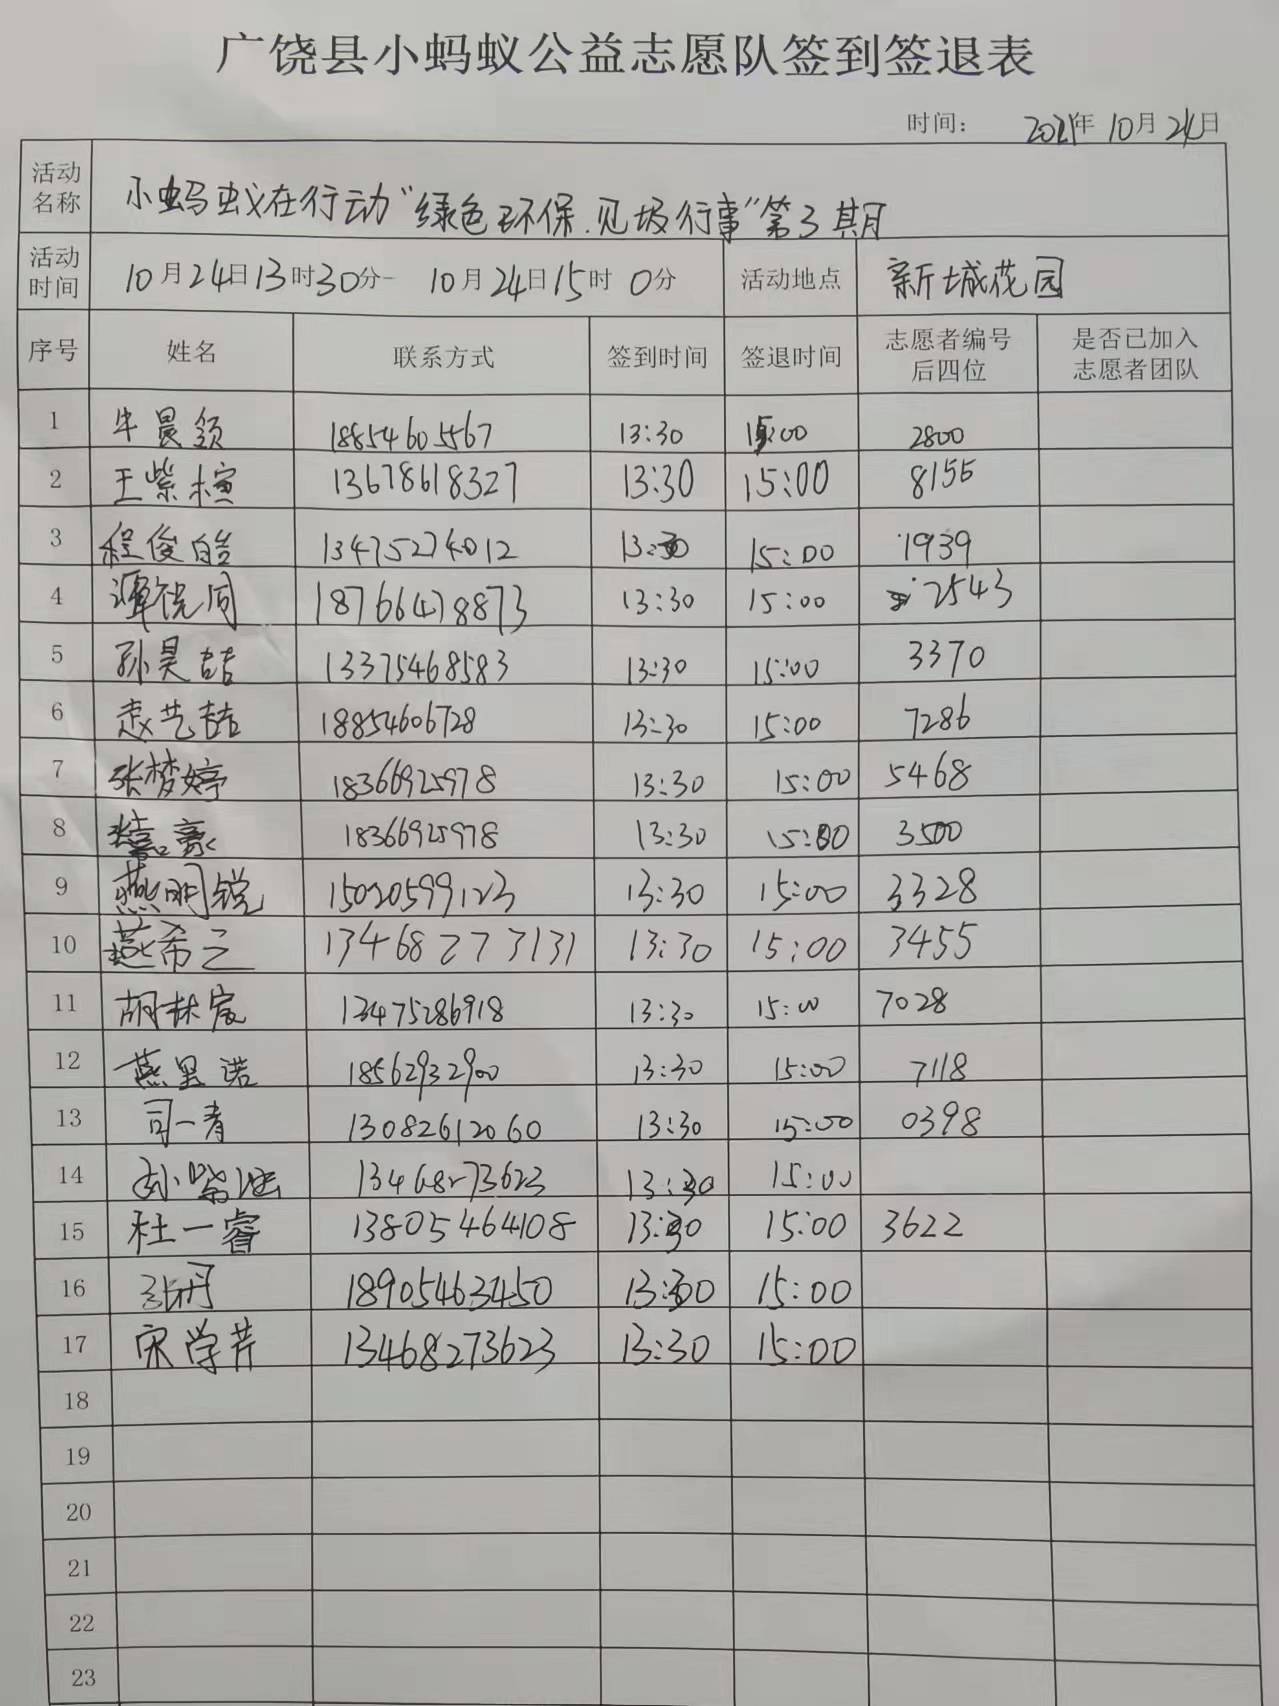 广饶县小蚂蚁公益志愿队签到签退表
时间： 2021年 10月 24日
活动名称 小蚂蚁在行动“绿色环保.见圾行事”第3期
活动时间 10月24日13时30分- 10月24日15时0分 活动地点 新城花园
序号 姓名 联系方式 签到时间 签退时间 志愿者编号后四位 是否已加入志愿者团队
1 牛晨 18854605567 13:30 15:00 2800
2 王紫楦 13678618327 13:30 15:00 8155
3 程俊皓 13475274012 13:30 15:00 1939
4 谭锐同 18766478873 13:30 15:00 2543
5 孙昊喆 13375468583 13:30 15:00 3370
6 赵艺喆 18854606728 13:30 15:00 7286
7 张梦婷 18366925978 13:30 15:00 5468
8 豪 18366925978 13:30 15:00 3500
9 燕明锐 15020599123 13:30 15:00 3328
10 燕希之 134682773131 13:30 15:00 3455
11 胡林宸 13475286918 13:30 15:00 7028
12 燕里诺 18562932900 13:30 15:00 7118
13 司一青 13082612060 13:30 15:00 0398
14 孙紫 13468273623 13:30 15:00
15 杜一睿 13805464108 13:30 15:00 3622
16 张丹 18905463450 13:30 15:00
17 宋学芹 13468273623 13:30 15:00
18
19
20
21
22
23